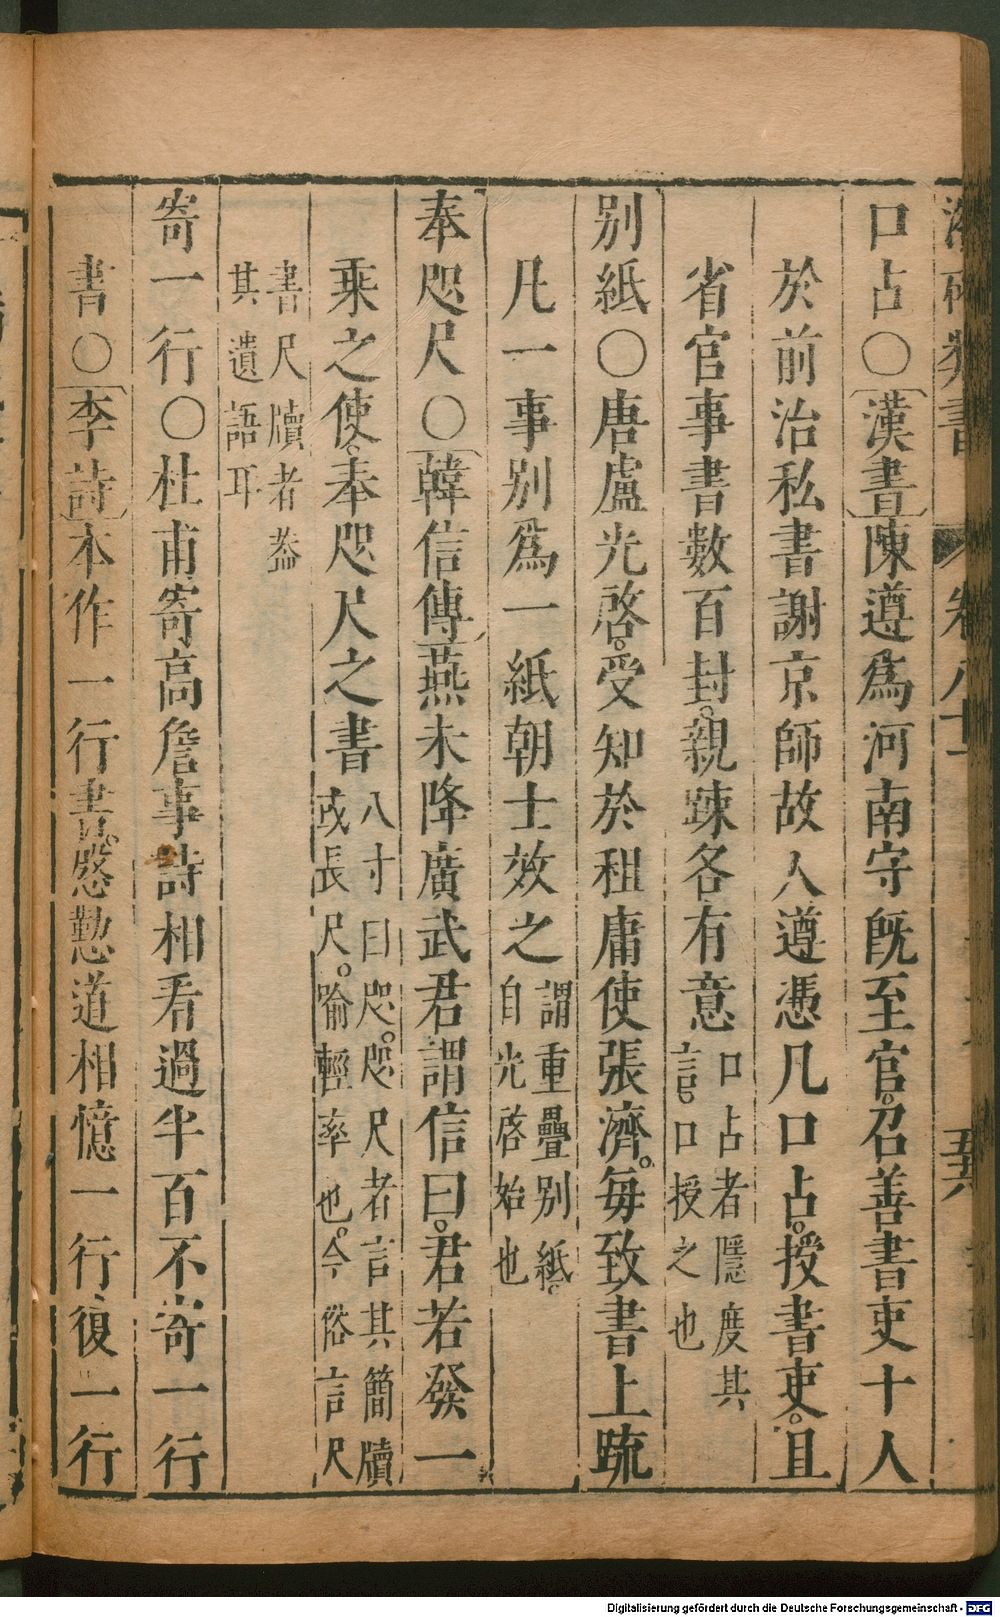 卷八十
五十六
口占〇漢書陳遵爲河南守旣至官召善書吏十人
於前治私書謝京師故人遵憑几口占授書吏且
省官事書數百封親踈各有意口占者隱度其言口授之也
別紙〇唐盧光啓受知於租庸使張濟每致書上疏
凡一事別爲一紙朝士效之謂重疊別紙自光啓始也
奉咫尺〇韓信傳燕未降廣武君謂信曰君若發一
乘之使奉咫尺之書八寸曰咫咫尺者言其簡牘或長尺喻輕率也今俗言尺
書尺牘者葢其遺語耳
寄一行〇杜甫寄高詹事詩相看過半百不寄一行
書〇李詩本作一行書慇懃道相憶一行復一行
Digitalisierung gefördert durch die Deutsche Forschungsgemeinschaft - DFG